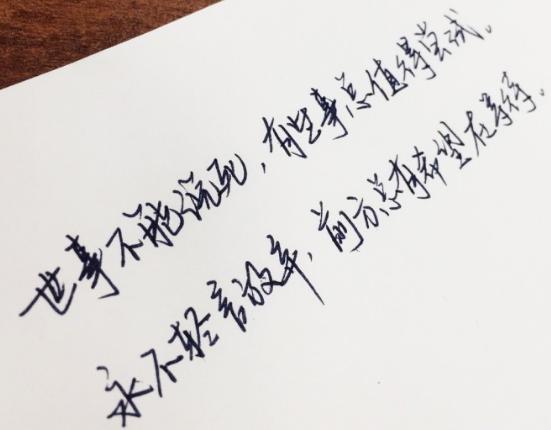 世事不能说死，有些事总值得尝试。
永不轻言放弃，前方总有希望在等待。